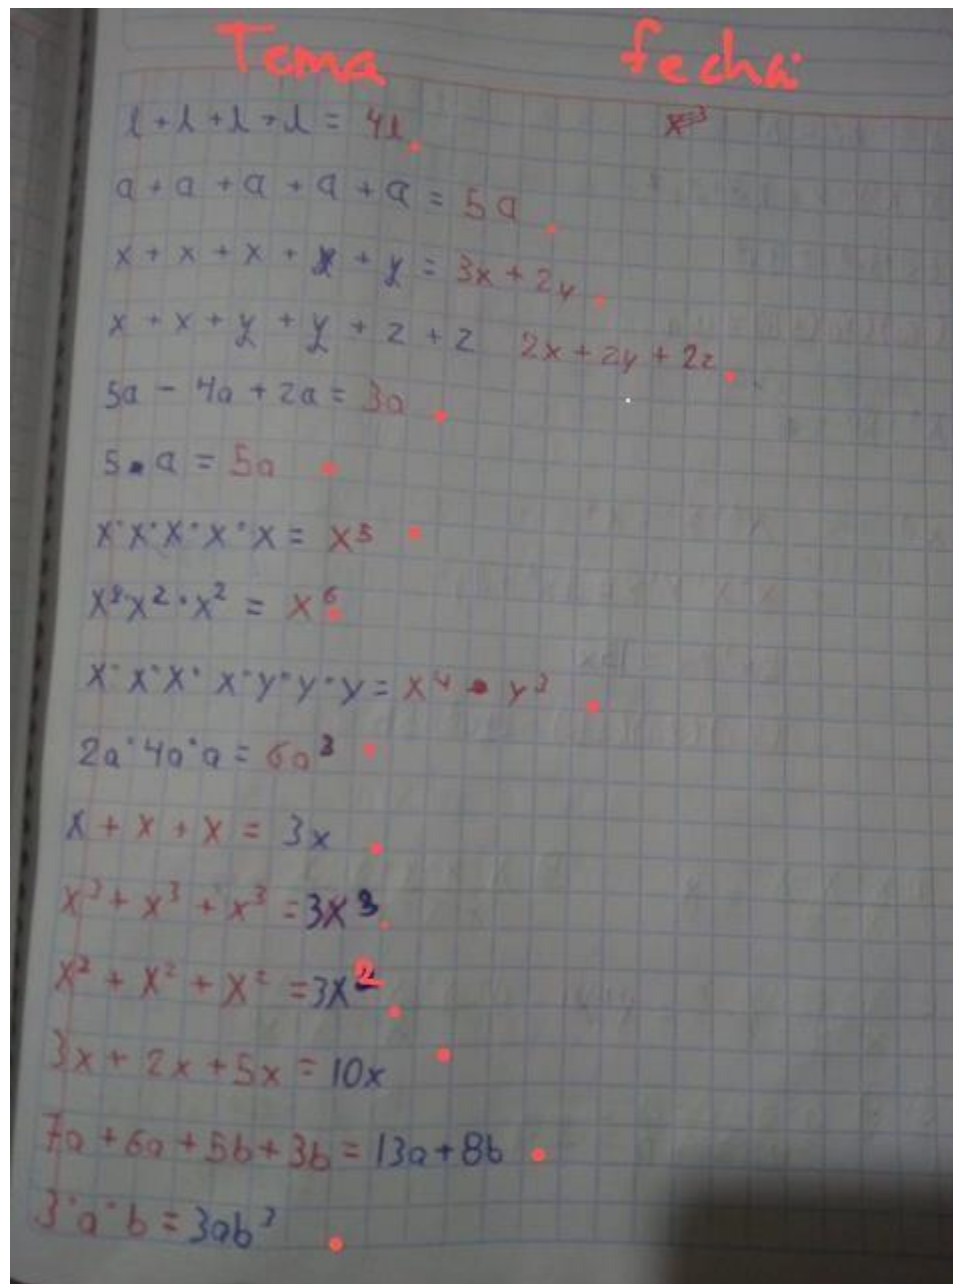 Tema fecha:
l + l + l + l = 4l
a + a + a + a + a = 5a
x + x + x + y + y = 3x + 2y
x + x + y + y + z + z 2x + 2y + 2z
5a - 4a + 2a = 3a
5 · a = 5a
x · x · x · x · x = x⁵
x² · x² · x² = x⁶
x · x · x · x · y · y · y = x⁴ · y³
2a · 4a · a = 6a³
x + x + x = 3x
x³ + x³ + x³ = 3x³
x² + x² + x² = 3x²
3x + 2x + 5x = 10x
7a + 6a + 5b + 3b = 13a + 8b
3 · a · b = 3ab³